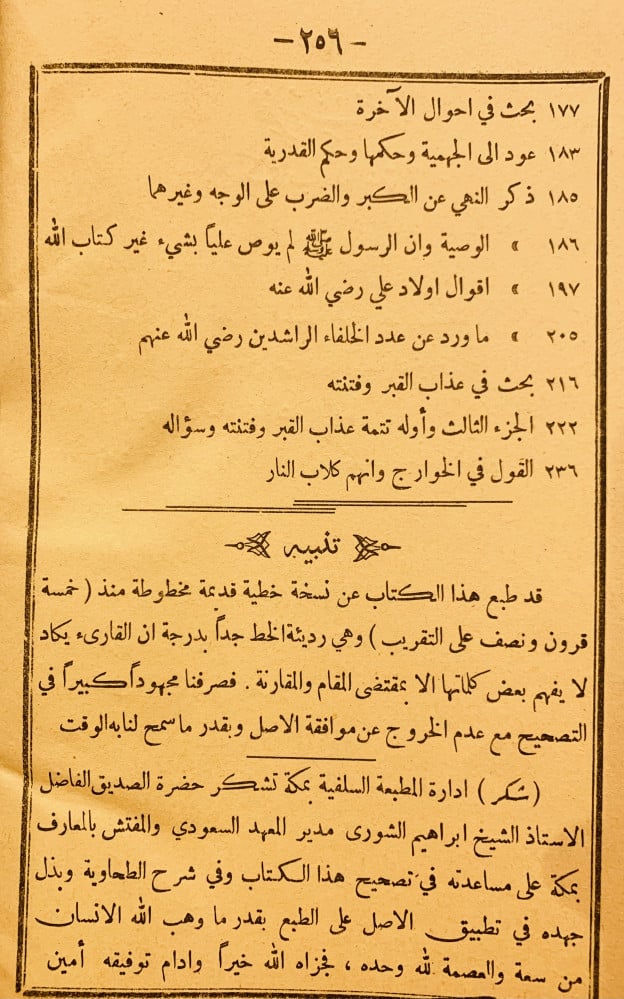 - ٢٥٦ -
١٧٧ بحث في احوال الآخرة
١٨٣ عود الى الجهمية وحكمها وحكم القدرية
١٨٥ ذكر النهي عن الكبر والضرب على الوجه وغيرهما
١٨٦ » الوصية وان الرسول ﷺ لم يوص علياً بشيء غير كتاب الله
١٩٧ » اقوال اولاد علي رضي الله عنه
٢٠٥ » ما ورد عن عدد الخلفاء الراشدين رضي الله عنهم
٢١٦ بحث في عذاب القبر وفتنته
٢٢٢ الجزء الثالث وأوله تتمة عذاب القبر وفتنته وسؤاله
٢٣٦ القول في الخوارج وانهم كلاب النار
تنبيه
قد طبع هذا الكتاب عن نسخة خطية قديمة مخطوطة منذ ( خمسة
قرون ونصف على التقريب ) وهي رديئة الخط جداً بدرجة ان القارىء يكاد
لا يفهم بعض كلماتها الا بمقتضى المقام والمقارنة . فصرفنا مجهوداً كبيراً في
التصحيح مع عدم الخروج عن موافقة الاصل وبقدر ما سمح لنا به الوقت
( شكر ) ادارة المطبعة السلفية بمكة تشكر حضرة الصديق الفاضل
الاستاذ الشيخ ابراهيم الشورى مدير المعهد السعودي والمفتش بالمعارف
بمكة على مساعدته في تصحيح هذا الكتاب وفي شرح الطحاوية وبذل
جهده في تطبيق الاصل على الطبع بقدر ما وهب الله الانسان
من سعة والعصمة لله وحده ، فجزاه الله خيراً وادام توفيقه أمين